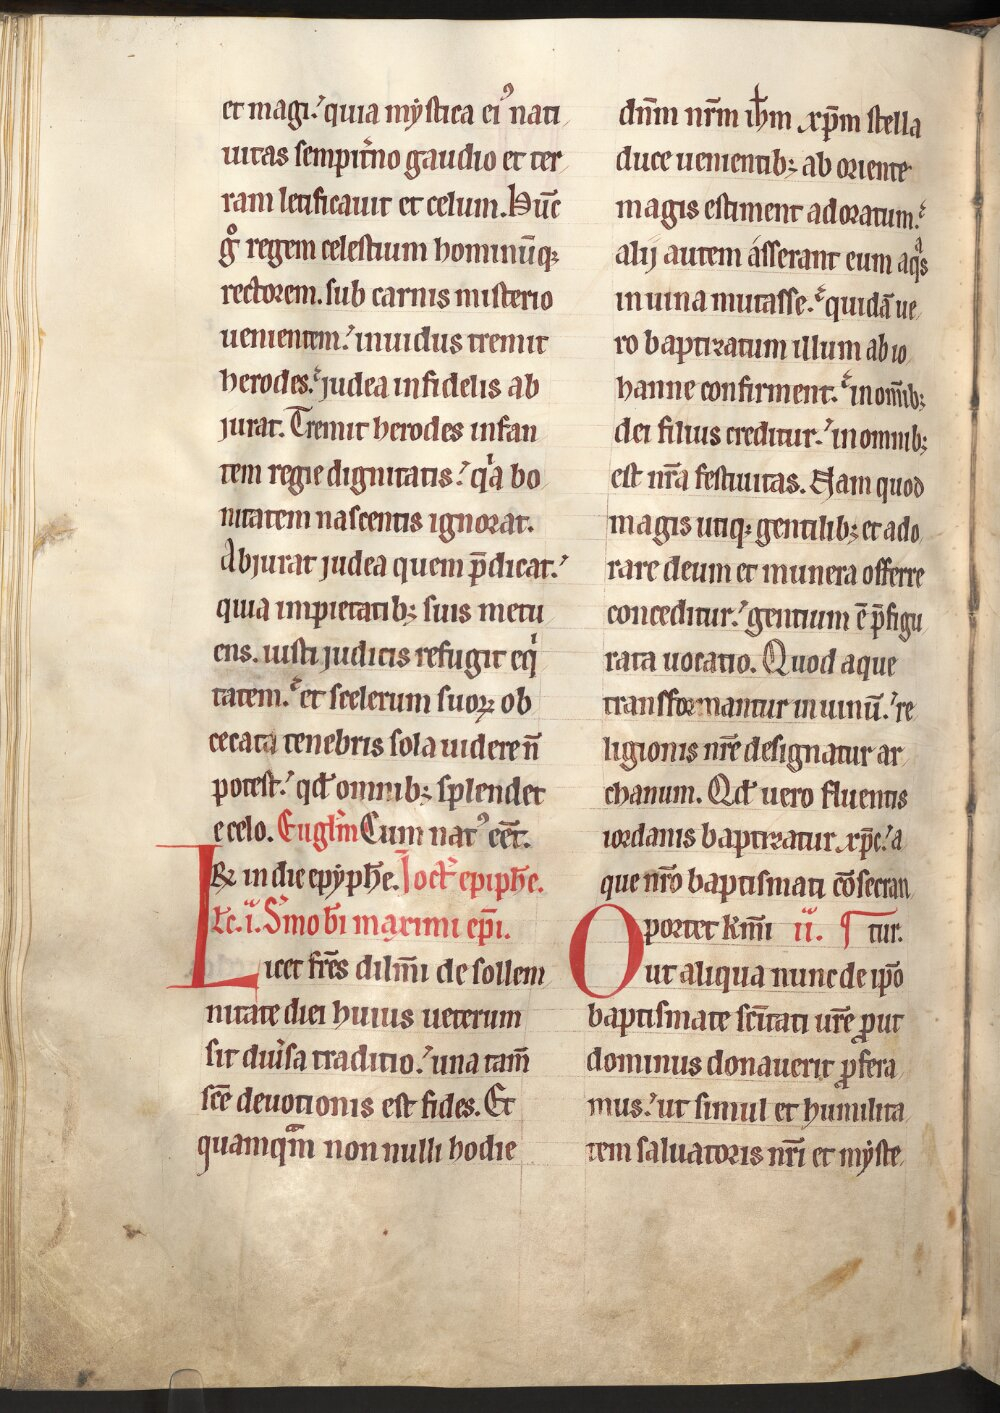 et magi. quia mystica ei᾿ nati
uitas sempit̾no gaudio et ter
ram letificauit et celum. Hūc
gͦ regem celestium hominūq;
rectorem. sub carnis misterio
uenientem. inuidus tremit
herodes. judea infidelis ab
jurat. Tremit herodes infan
tem regie dignitatis. qͥa bo
nitatem nascentis ignorat.
Abjurat judea quem p̄dicat.
quia impietatib; suis metu
ens. iusti judicis refugit eqͥ
tatem. et scelerum suoꝝ ob
cecata tenebris sola uidere n̄
potest. qđ omnib; splendet
e celo. Eugl̄m Cum nat᾿ eēt.
R̃ in die epyph̄e. In oct᾿ epiph̄e.
Lc̄. i. S᾿mo b̄i maximi ep̄i.
Licet fr̄es dilm̄i de sollem
nitate diei huius ueterum
sit diu̾sa traditio. una tam̄
sc̄e deuotionis est fides. Et
quamqᷓm non nulli hodie
dn̄m nr̄m ih̄m xp̄m stella
duce uenientib; ab oriente
magis estiment adoratum.
alij autem asserant eum aqᷓs
in uina mutasse. quidā ue
ro baptizatum illum ab io
hanne confirment. in om̄ib;
dei filius creditur. in omnib;
est nr̄a festiuitas. Nam quod
magis utiq; gentilib; et ado
rare deum et munera offerre
conceditur. gentium ē p̄figu
rata uocatio. Quod aque
transformantur in uinū. re
ligionis nr̄e designatur ar
chanum. Qđ uero fluentis
iordanis baptizatur xp̄c. a
que nr̄o baptismati cōsecran
Oportet km̄i ii. ¶ tur.
ut aliqua nunc de ip̄o
baptismate sc̄itati ur̄e ꝓut
dominus donauerit ꝓfera
mus. ut simul et humilita
tem saluatoris nr̄i et myste